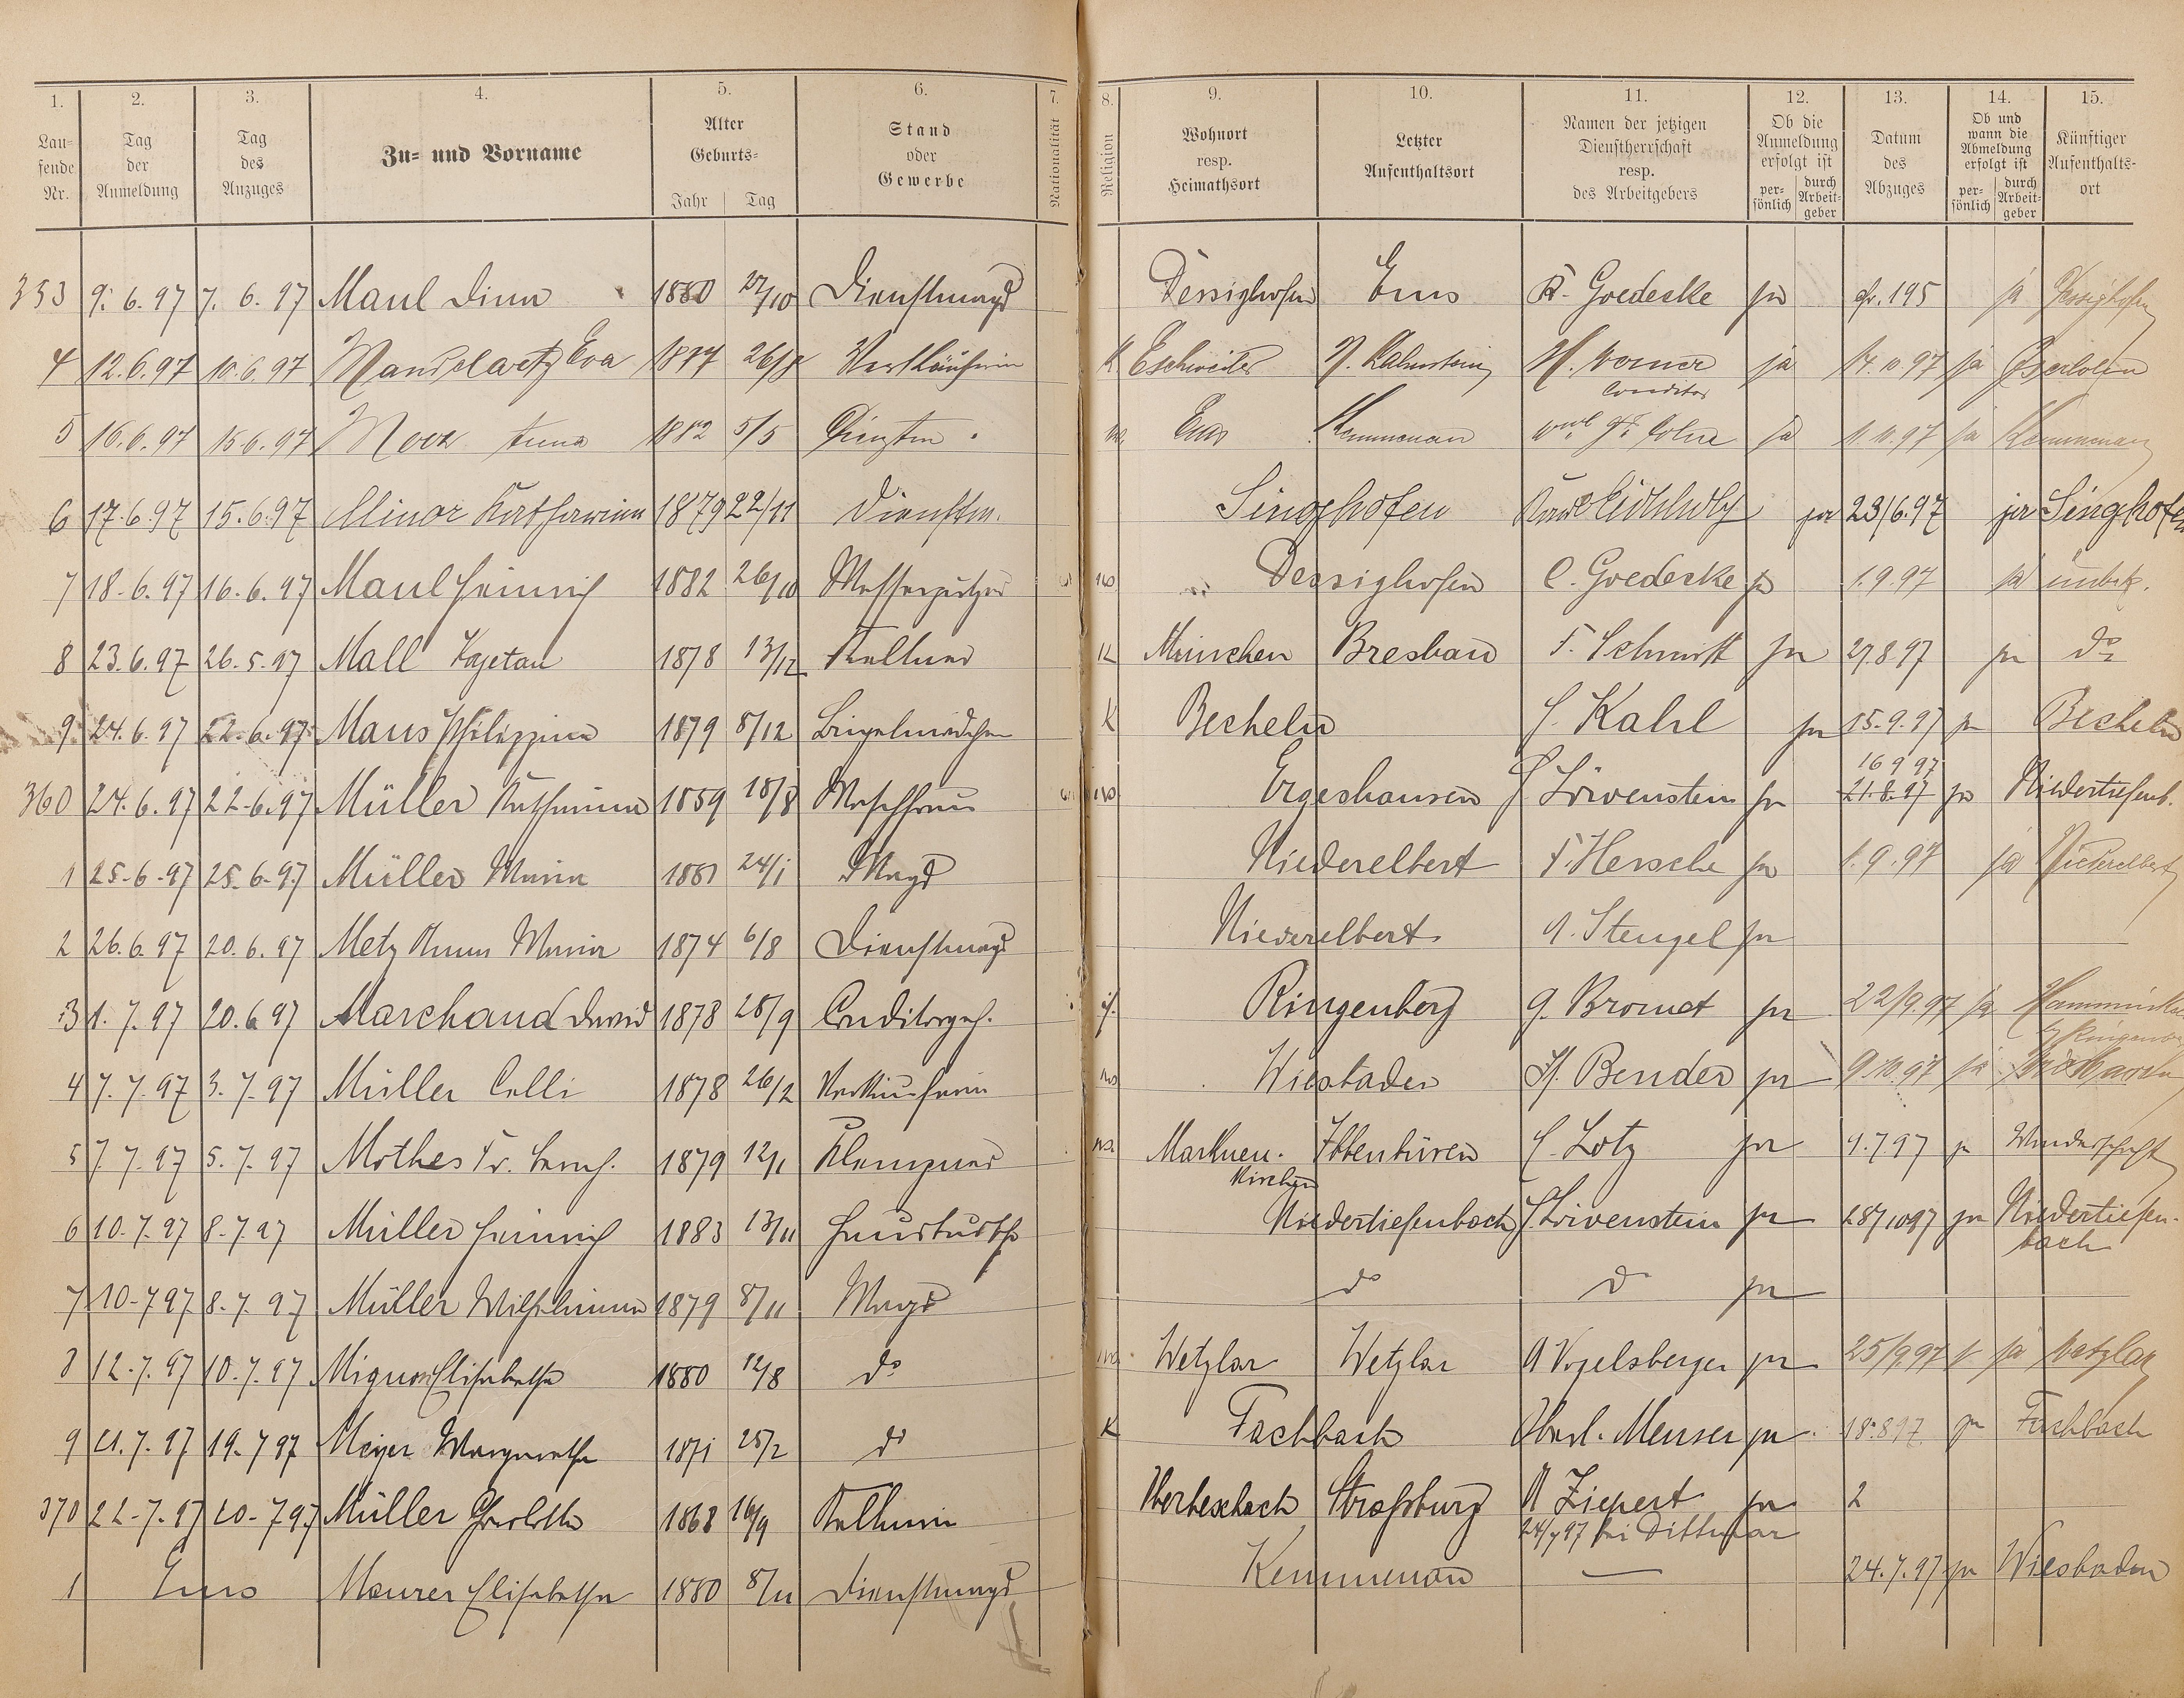 1. 2. 3. 4. 5. 6. 7. 8. 9. 10. 11. 12. 13. 14. 15.
Lau=
fende
Nr.
Tag
der
Anmeldung
Tag
des
Anzuges
Zu= und Vorname
Alter
Geburts=
Jahr Tag
Stand
oder
Gewerbe
Nationalität
Religion
Wohnort
resp.
Heimathsort
Letzter
Aufenthaltsort
Namen der jetzigen
Dienstherrschaft
resp.
des Arbeitgebers
Ob die
Anmeldung
erfolgt ist
per=
sönlich
durch
Arbeit=
geber
Datum
des
Abzuges
Ob und
wann die
Abmeldung
erfolgt ist
per=
sönlich
durch
Arbeit=
geber
Künftiger
Aufenthalts=
ort
353 9. 6. 97 7. 6. 97 Maul Dina 1880 27/10 Dienstmagd Dessighofen Ems Goedecke ja 195 ja Dessighofen
4 12. 6. 97 10. 6. 97 Eva 26/ Verkäuferin K Eschweiler N. Lahnstein ja 14. 10. 97 ja Iserlohn
Conditor
5 16. 6. 97 15. 6. 97 Anna 1882 5/5 Dienstm. Ems Kemmenau ja 97 ja Kemmenau
6 17. 6. 97 15. 6. 97 Minor Katharina 1879 22/11 Dienstm. Singhofen ja 23/6. 97 ja Singhofen
7 18. 6. 97 16. 6. 97 Maul Heinrich 1882 26/10 Messerputzer Dessighofen C. Goedecke ja 1. 9. 97 ja unbek.
8 23. 6. 97 26. 5. 97 Mall Kajetan 1878 13/12 Kellner K München Breslau F. Schmitt ja 27. 8. 97 ja do
9 24. 6. 97 22. 6. 97 Maus Philippine 1879 8/12 Bügelmädchen K Becheln Kahl ja 15. 9. 97 ja Becheln
16 9 97
360 24. 6. 97 22. 6. 97 Müller Katharina 1859 18/8 Waschfrau Ergeshausen Löwenstein ja 21. 8. 97 ja Niedertiefenb.
1 25. 6. 97 25. 6. 97 Müller Maria 24/1 Magd Niederelbert ja 1. 9. 97 ja Niederelbert
2 26. 6. 97 20. 6. 97 Metz Anna Maria 1874 6/8 Dienstmagd Niederelbert A. Stengel ja
3 1. 7. 97 20. 6 97 Marchand David 1878 28/9 Conditorgeh. Ringenberg ja 22/9. 97 ja
4 7. 7. 97 3. 7. 97 Müller Celli 1878 26/2 Verkäuferin Wiesbaden H. Bender ja 9. 10. 97 ja
5 7. 7. 97 5. 7. 97 Mothes Fr. 1879 12/1 Klempner Markneu- Ibbenbüren Lotz ja 9. 7. 97 ja Wanderschaft
kirchen
6 10. 7. 97 8. 7. 97 Müller Heinrich 1883 13/11 Hausbursche Niedertiefenbach Löwenstein ja 28/10 97 ja Niedertiefen-
bach
7 10. 7 97 8. 7. 97 Müller Wilhelmina 1879 8/11 Magd do do ja
8 12. 7. 97 10. 7. 97 Mignon Elisabetha 1880 12/8 do Wetzlar Wetzlar A Vogelsberger ja 25/9 97 ja Wetzlar
9 21. 7. 97 19. 7 97 Meyer Margaretha 1871 25/2 do K Fachbach Oberl. Menser ja 18. 8 97 ja Fachbach
370 22. 7. 97 20. 7 97 Müller Charlotte 1868 16/9 Kellnerin Straßburg A Ziepert ja 2
24/7 97 bei Dittmar
1 Ems Maurer Elisabetha 1880 8/11 Dienstmagd Kemmenau — 24. 7. 97 ja Wiesbaden